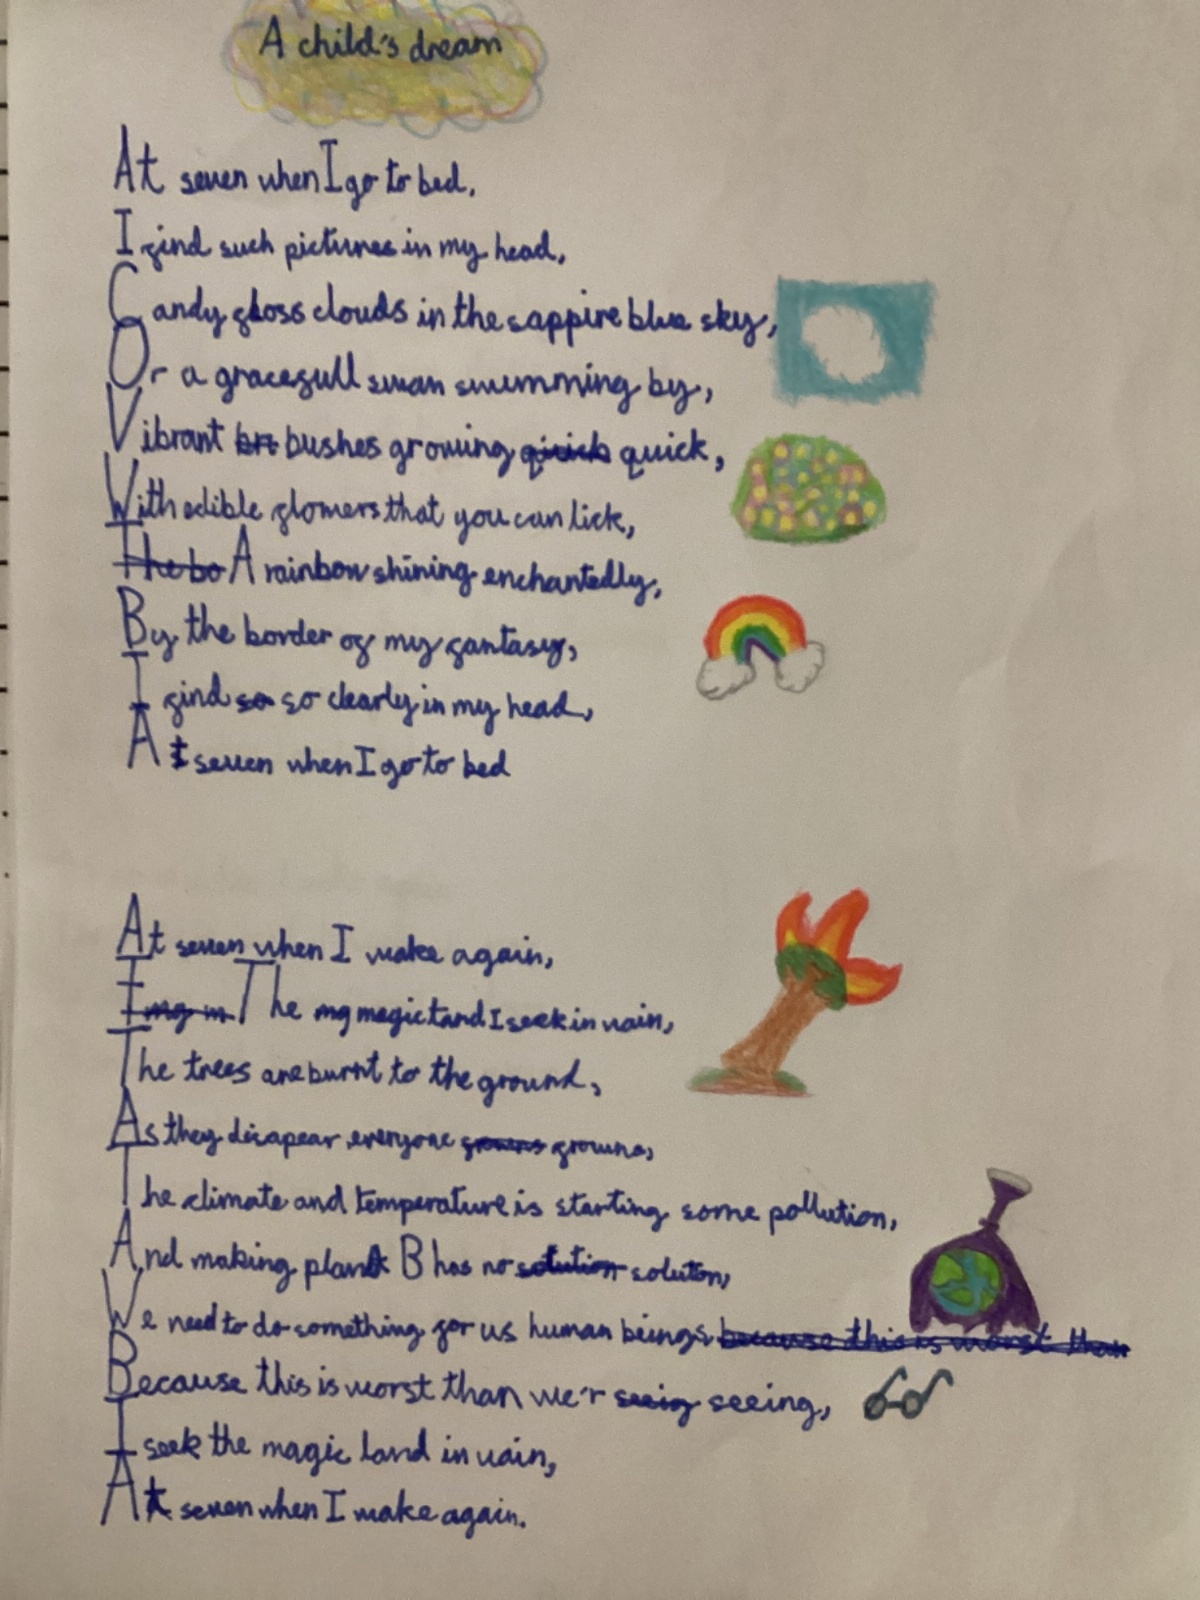 A child's dream
At seven when I go to bed,
I find such pictures in my head,
Candy gloss clouds in the sappire blue sky,
Or a gracefull swan swimming by,
Vibrant bushes growing quick,
With edible flowers that you can lick,
A rainbow shining enchantedly,
By the border of my fantasy,
I find so clearly in my head,
At seven when I go to bed
At seven when I wake again,
The magic land I seek in vain,
The trees are burnt to the ground,
As they disapear everyone growns,
The climate and temperature is starting some pollution,
And making plan B has no solution,
We need to do something for us human beings
Because this is worst than we'r seeing,
I seek the magic land in vain,
At seven when I wake again.